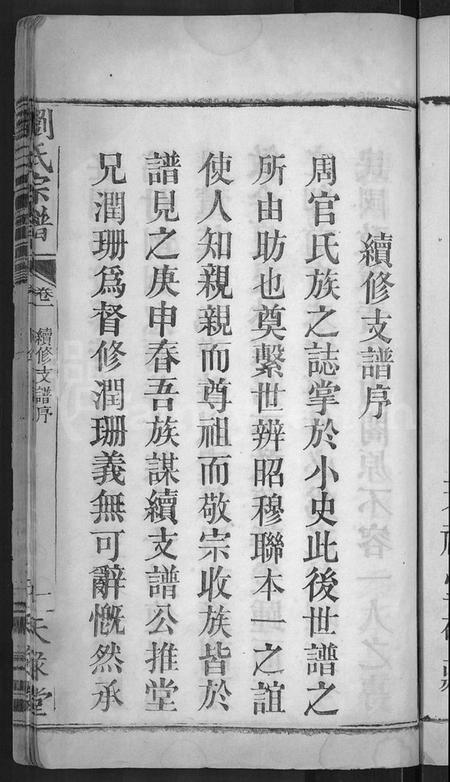 續修支譜序
周官氏族之誌掌於小史此後世譜之
所由昉也奠繫世辨昭穆聯本一之誼
使人知親親而尊祖而敬宗收族皆於
譜見之庚申春吾族謀續支譜公推堂
兄潤珊爲督修潤珊義無可辭慨然承
劉氏宗譜
卷一
續修支譜序